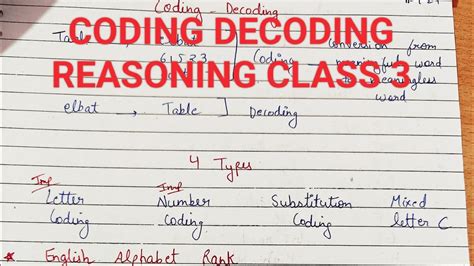 Coding - Decoding
CODING DECODING
REASONING CLASS 3
Table
61523
Coding
Conversion from
meaningful word
to meaningless
word
elbat → Table ] Decoding
4 Types
Imp Imp
Letter Number Substitution Mixed
Coding Coding Coding letter C
* English Alphabet Rank